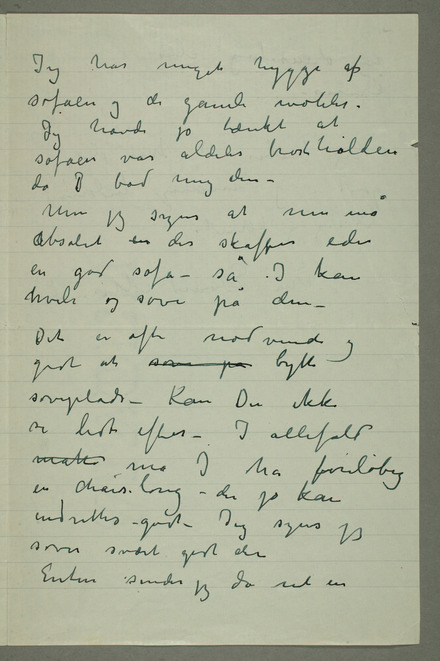 Jeg har meget hygge af
sofaen og de gamle møbler.
Jeg havde jo tænkt at
sofaen var aldeles brøstholden
da I bad mig den –
Men jeg synes at nu må
absolut der skaffes eder
en god sofa – så I kan
hvile og sove på den –
Det er ofte nødvendig
godt at sove på bytte
soveplads – Kan Du ikke
se lidt efter – I allefald
måtte må I ha foreløbig
en chaiselong – der jo kan
indrettes godt – Jeg synes jeg
sover svært godt der
Enten sender jeg da ned en